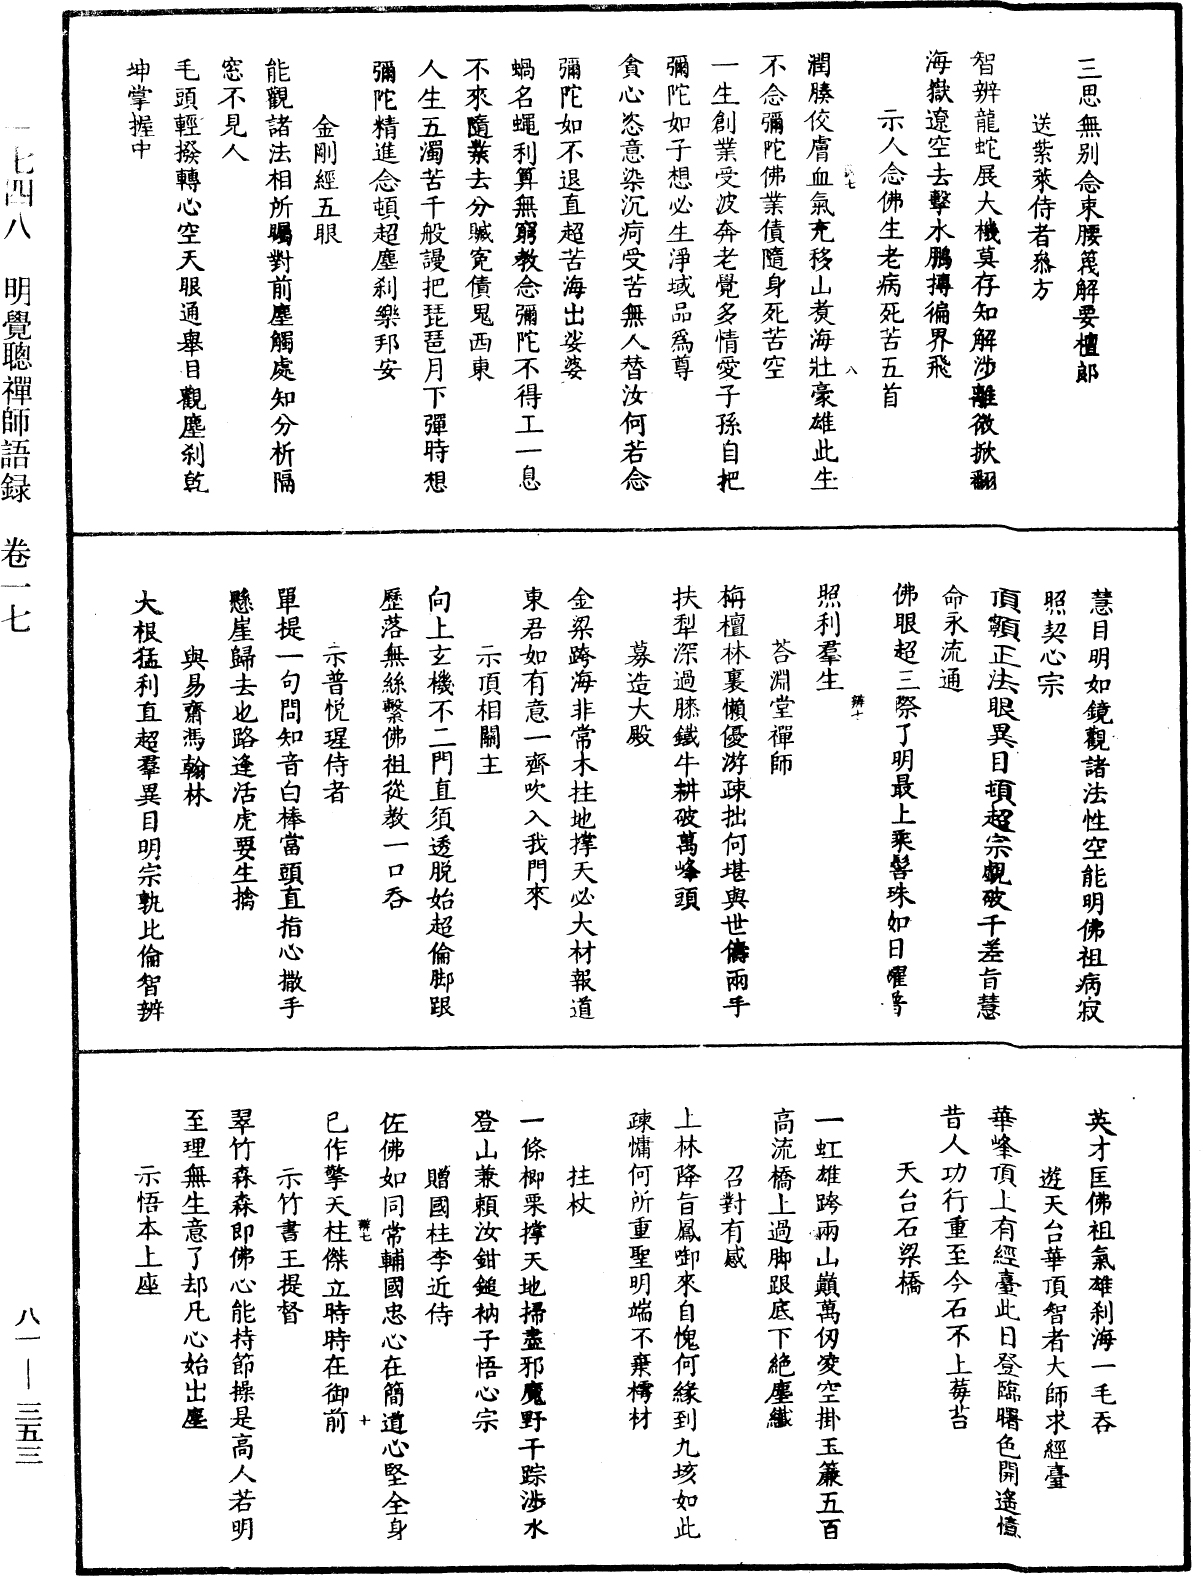 三思無別念束腰篾解要檀郎
送紫萊侍者叅方
智辨龍蛇展大機莫存知解涉離微掀翻
海嶽遼空去擊水鵬摶徧界飛
示人念佛生老病死苦五首
潤腠佼膚血氣充移山煑海壯豪雄此生
不念彌陀佛業債隨身死苦空
一生創業受波奔老覺多情愛子孫自把
彌陀如子想必生淨域品爲尊
貪心恣意染沉疴受苦無人替汝何若念
彌陀如不退直超苦海出娑婆
蝸名蠅利算無窮教念彌陀不得工一息
不來隨業去分贓寃債鬼西東
人生五濁苦千般謾把琵琶月下彈時想
彌陀精進念頓超塵刹樂邦安
金剛經五眼
能觀諸法相所矚對前塵觸處知分析隔
窓不見人
毛頭輕撥轉心空天眼通舉目觀塵刹乾
坤掌握中
慧目明如鏡觀諸法性空能明佛祖病寂
照契心宗
頂顙正法眼異目頓超宗覷破千差旨慧
命永流通
佛眼超三際了明最上乘髻珠如日曜普
照利羣生
荅淵堂禪師
栴檀林裏懶優游疎拙何堪與世儔兩手
扶犁深過膝鐵牛耕破萬峰頭
募造大殿
金梁跨海非常木拄地撑天必大材報道
東君如有意一齊吹入我門來
示頂相關主
向上玄機不二門直須透脱始超倫脚跟
歷落無絲繫佛祖從教一口吞
示普悦瑆侍者
單提一句問知音白棒當頭直指心撒手
懸崖歸去也路逢活虎要生擒
與易齋馮翰林
大根猛利直超羣異目明宗孰比倫智辨
英才匡佛祖氣雄刹海一毛吞
遊天台華頂智者大師求經臺
華峰頂上有經臺此日登臨曙色開遙憶
昔人功行重至今石不上莓苔
天台石梁橋
一虹雄跨兩山巔萬仭凌空掛玉簾五百
高流橋上過脚跟底下絶塵纖
召對有感
上林降旨鳳啣來自愧何緣到九垓如此
疎慵何所重聖明端不棄樗材
拄杖
一條榔栗撑天地掃盡邪魔野干踪涉水
登山兼頼汝鉗鎚衲子悟心宗
贈國柱李近侍
佐佛如同常輔國忠心在簡道心堅全身
已作擎天柱傑立時時在御前
示竹書王提督
翠竹森森即佛心能持節操是高人若明
至理無生意了却凡心始出塵
示悟本上座
一七四八　明覺聰禪師語録　卷一七
八一—三五三